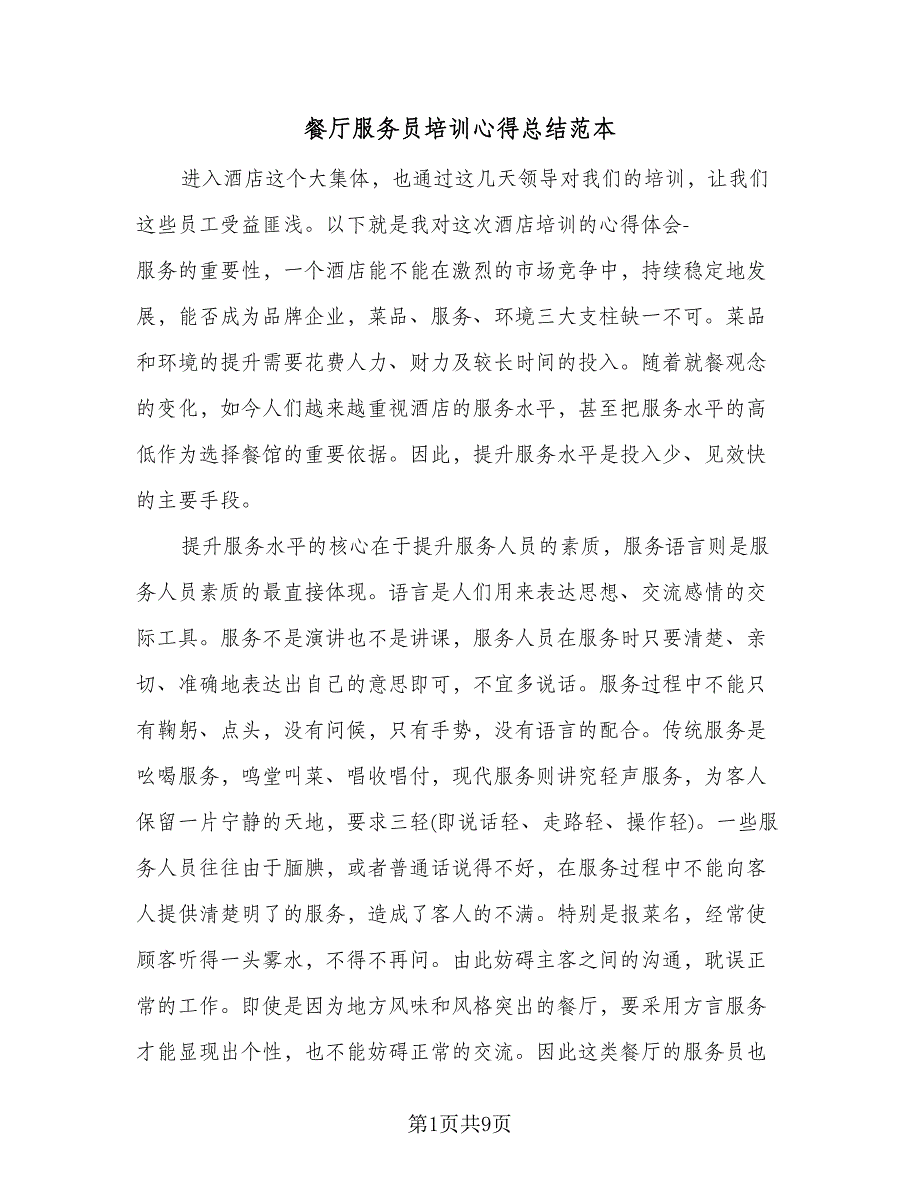 餐厅服务员培训心得总结范本
进入酒店这个大集体，也通过这几天领导对我们的培训，让我们
这些员工受益匪浅。以下就是我对这次酒店培训的心得体会-
服务的重要性，一个酒店能不能在激烈的市场竞争中，持续稳定地发
展，能否成为品牌企业，菜品、服务、环境三大支柱缺一不可。菜品
和环境的提升需要花费人力、财力及较长时间的投入。随着就餐观念
的变化，如今人们越来越重视酒店的服务水平，甚至把服务水平的高
低作为选择餐馆的重要依据。因此，提升服务水平是投入少、见效快
的主要手段。
提升服务水平的核心在于提升服务人员的素质，服务语言则是服
务人员素质的最直接体现。语言是人们用来表达思想、交流感情的交
际工具。服务不是演讲也不是讲课，服务人员在服务时只要清楚、亲
切、准确地表达出自己的意思即可，不宜多说话。服务过程中不能只
有鞠躬、点头，没有问候，只有手势，没有语言的配合。传统服务是
吆喝服务，鸣堂叫菜、唱收唱付，现代服务则讲究轻声服务，为客人
保留一片宁静的天地，要求三轻(即说话轻、走路轻、操作轻)。一些服
务人员往往由于腼腆，或者普通话说得不好，在服务过程中不能向客
人提供清楚明了的服务，造成了客人的不满。特别是报菜名，经常使
顾客听得一头雾水，不得不再问。由此妨碍主客之间的沟通，耽误正
常的工作。即使是因为地方风味和风格突出的餐厅，要采用方言服务
才能显现出个性，也不能妨碍正常的交流。因此这类餐厅的服务员也
第1页共9页